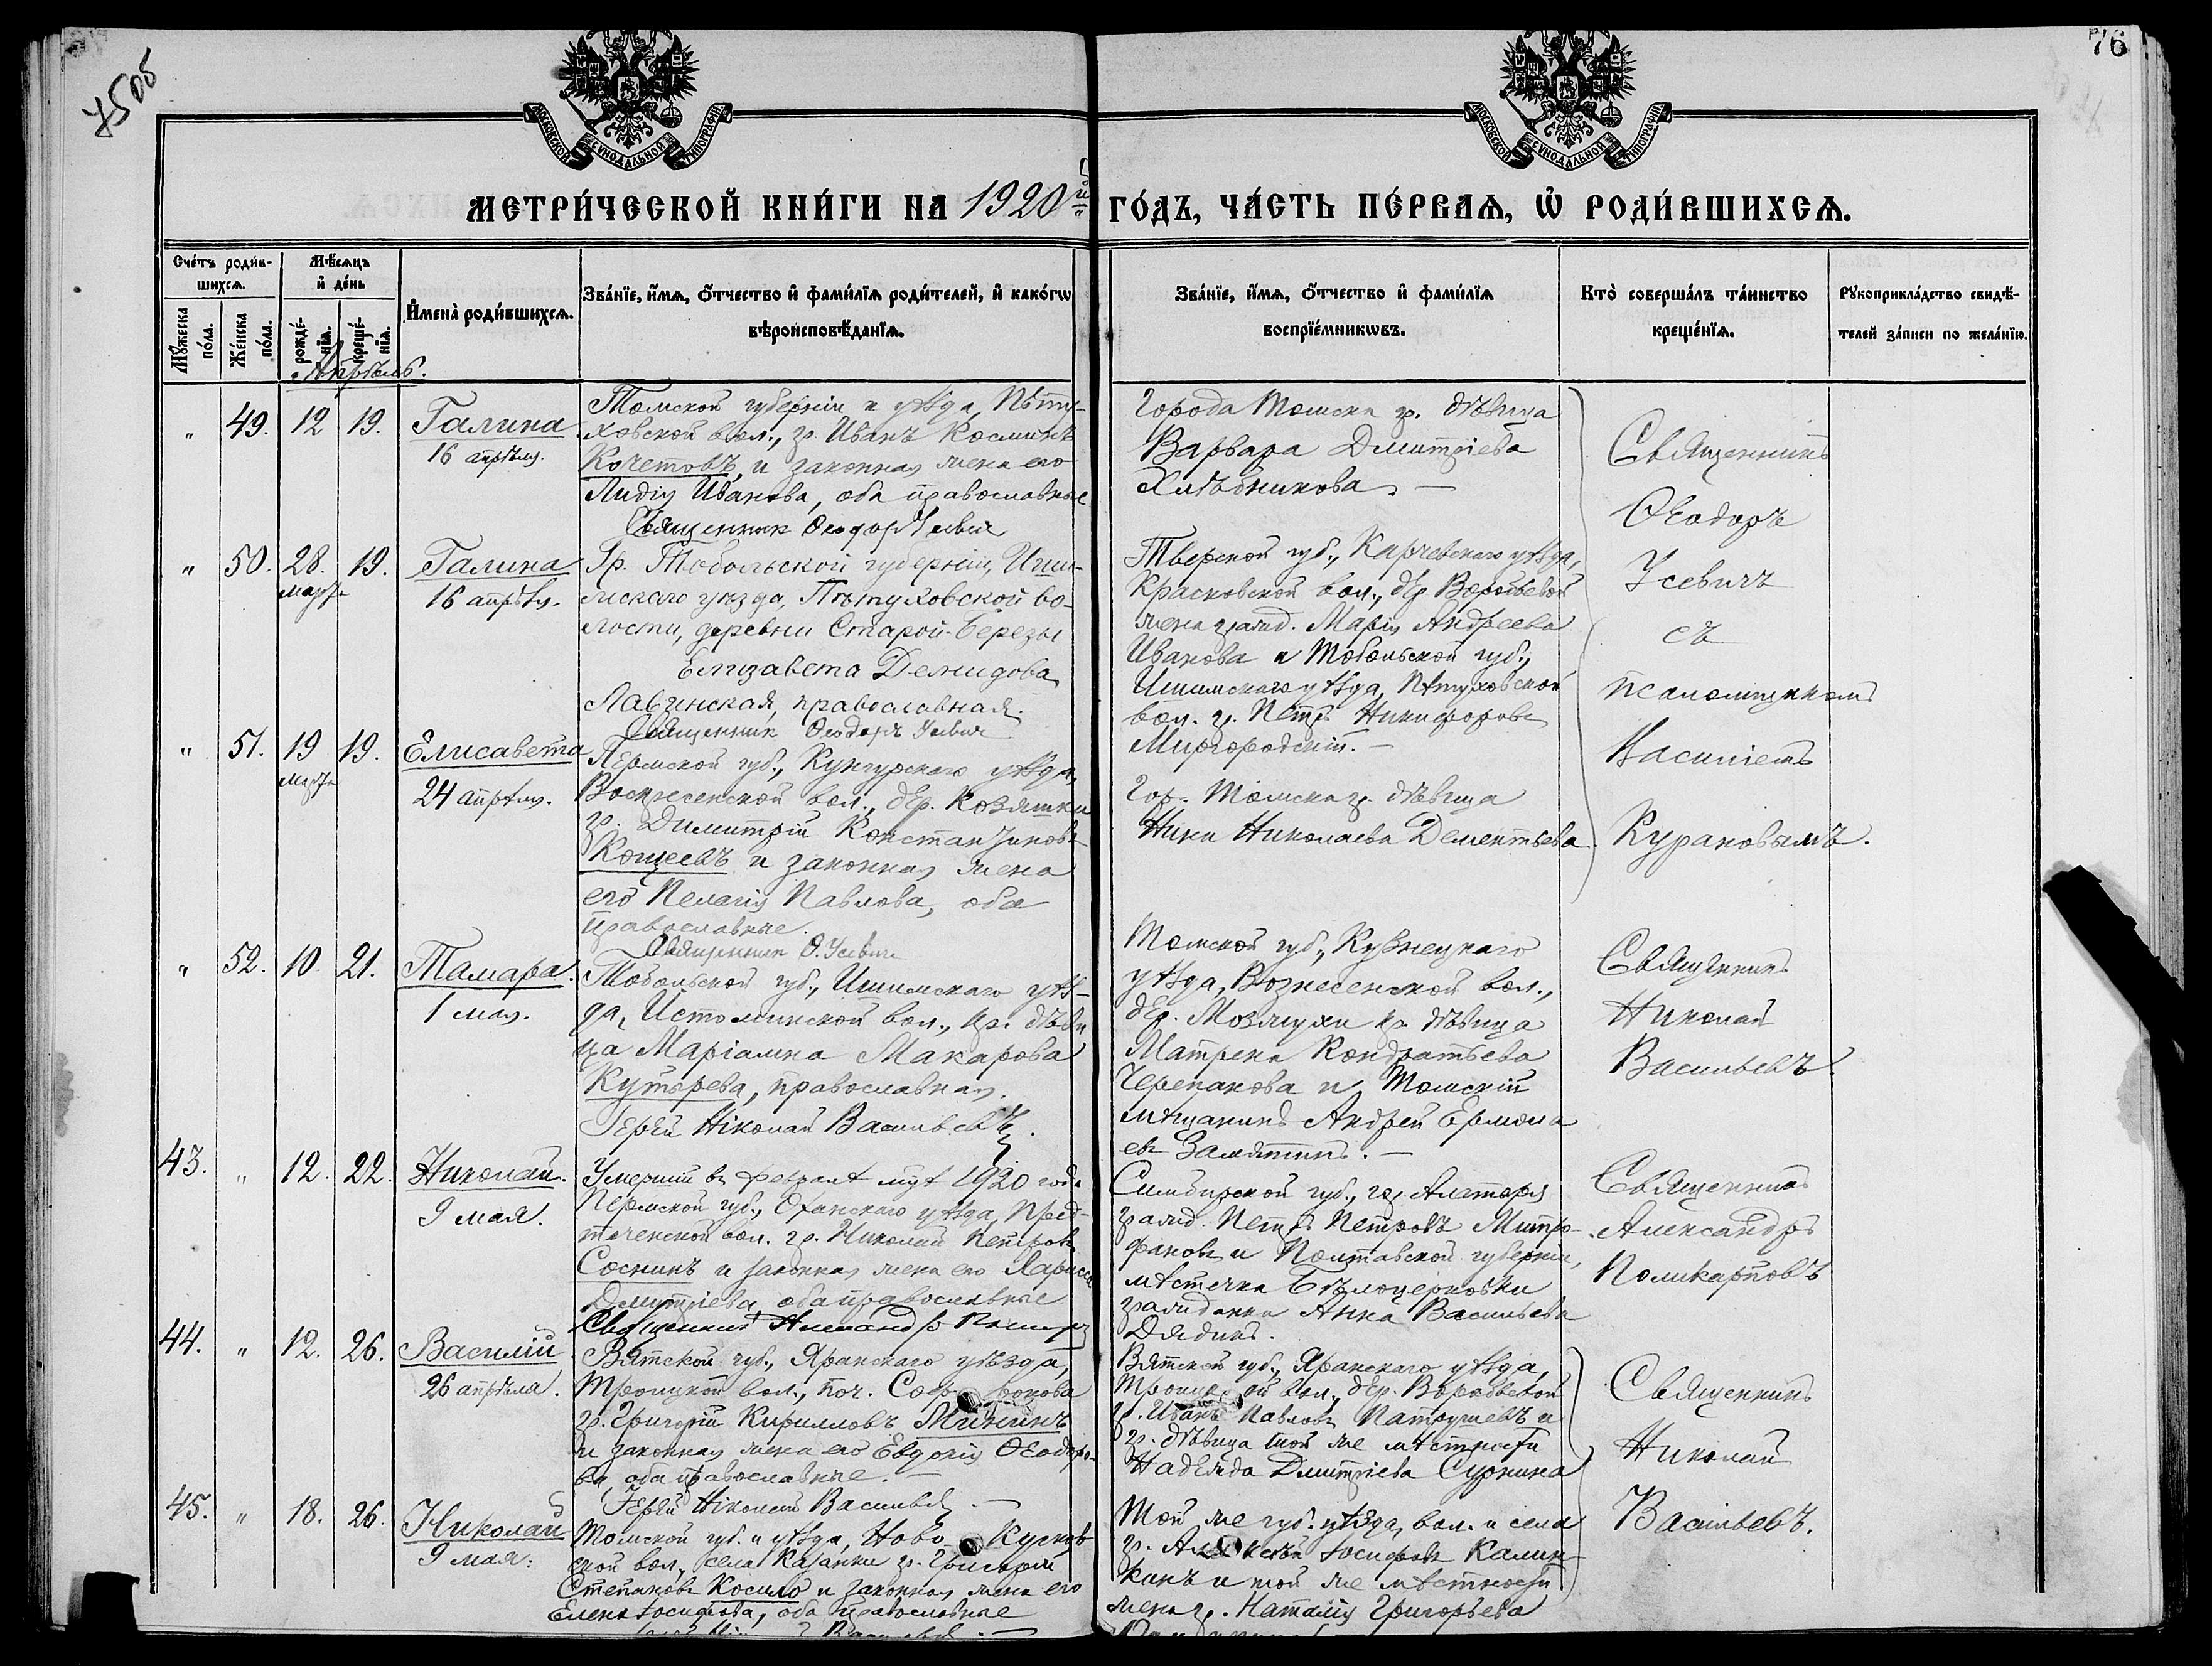 75об
76
МОСКОВСКОЙ СѴНОДАЛЬНОЙ ТИПОГРАФІИ
МОСКОВСКОЙ СѴНОДАЛЬНОЙ ТИПОГРАФІИ
МЕТРИ́ЧЕСКОЙ КНИ́ГИ НА 1920й ГО́ДЪ, ЧА́СТЬ ПЕ́РВАѦ, Ѡ҆ РОДИ́ВШИХСѦ.
Сче́тъ роди́в-
шихсѧ.
Мꙋ́жеска по́ла.
Же́нска по́ла.
Мѣ́сѧцъ
и҆ де́нь
рожде́-
нїѧ.
креще́-
нїѧ.
И҆мена̀ роди́вшихсѧ.
Зва́нїе, и҆́мѧ, ѻ҆́тчество и҆ фами́лїѧ роди́телей, и҆ како́гѡ
вѣроисповѣ́данїѧ.
Зва́нїе, и҆́мѧ, ѻ҆́тчество и҆ фами́лїѧ
воспрїе́мникѡвъ.
Кто̀ соверша́лъ та́инство
креще́нїѧ.
Рꙋкоприкла́дство свидѣ́-
телей за́писи по жела́нїю.
Апрѣль.
" 49. 12 19. Галина
16 апрѣля.
Томской губерніи и уѣзда, Пѣту-
ховской вол., гр. Иванъ Косминъ
Кочетовъ, и законная жена его
Лидія Иванова, оба православные
Священник Ѳеодор Усевич
Города Томска гр. дѣвица
Варвара Дмитріева
Хлѣбникова. —
Священникъ
Ѳеодоръ
Усевичъ
съ
псаломщикомъ
Василіемъ
Курановымъ.
" 50. 28. марта 19. Галина
16 апрѣля.
Гр. Тобольской губерніи, Иши-
мскаго уѣзда, Пѣтуховской во-
лости, деревни Старой-Березы
Елизавета Демидова
Лавгинская, православная.
Священник Ѳеодоръ Усевич
Тверской губ., Карчевскаго уѣзда,
Красковской вол., дер. Воробьевой
жена гражд. Марія Андреева
Иванова и Тобольской губ.,
Ишимскаго уѣзда, Пѣтуховской
вол. гр. Петръ Никифоровъ
Миргородскій. —
" 51. 19 марта 19. Елисавета
24 апрѣля.
Пермской губ., Кунгурскаго уѣзда,
Воскресенской вол., дер. Козяшки
гр. Димитрій Константиновъ
Кощеевъ и законная жена
его Пелагія Павлова, оба
православные.
Священник Ѳ. Усевич
Гор. Томска гр. дѣвица
Нина Николаева Дементьева.
" 52. 10. 21. Тамара.
1 мая.
Тобольской губ., Ишимскаго уѣз-
да, Истоминской вол., гр. дѣви
ца Маріамна Макарова
Кутырева, православная.
Іерей Николай Васильевъ.
Томской губ., Кузнецкаго
уѣзда, Вознесенской вол.,
дер. Мозжухи гр. дѣвица
Матрена Кондратьева
Черепанова и Томскій
мѣщанинъ Андрей Ермола
евъ Замятинъ. —
Священникъ
Николай
Васильевъ.
43. " 12. 22. Николай.
9 мая.
Умершій въ февралѣ мцѣ 1920 года
Пермской губ., Оханскаго уѣзда, Пред-
теченской вол. гр. Николай Петровъ
Соснинъ и законная жена его Лариса
Дмитріева, оба православные
Священникъ Александръ
Симбирской губ., гор. Алатыря
гражд. Петръ Петровъ Митро-
фановъ и Полтавской губерніи,
мѣстечка Бѣлоцерковки
гражданка Анна Васильева
Дядинъ.
Священникъ
Александръ
Поликарповъ
44. " 12. 26. Василій
26 апрѣля.
Вятской губ., Яранскаго уѣзда,
Троицкой вол., поч. Софронова
гр. Григорій Кирилловъ Мининъ
и законная жена его Евдокія Ѳеодоро-
ва, оба православные. —
Іерей Николай Васильевъ. —
Вятской губ., Яранскаго уѣзда,
Троицкой вол., дер. Воробьевой
гр. Иванъ Павловъ Патрушевъ и
гр. дѣвица той же мѣстности
Надежда Дмитріева Суркина
Священникъ
Николай
Васильевъ.
45. " 18. 26. Николай
9 мая.
Томской губ. и уѣзда, Ново-Кусков-
ской вол., села Казанки гр. Григорій
Степановъ Косило и законная жена его
Елена Іосифова, оба православные
Той же губ. уѣзда, вол. и села
гр. Алексѣй Іосифовъ Калин-
кинъ и той же мѣстности
жена гр. Наталія Григорьева